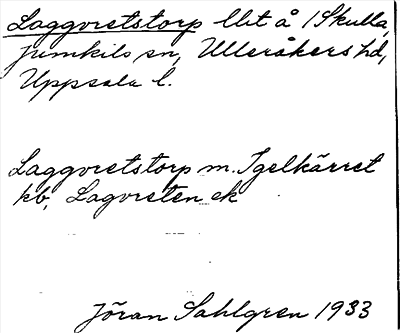 Laggvretstorp llt å /Skulla,
Jumkils sn, Ulleråkers hd,
Uppsala l.
Laggvretstorp m. Igelkärret
kb, Lagvreten ek
Jöran Sahlgren 1933